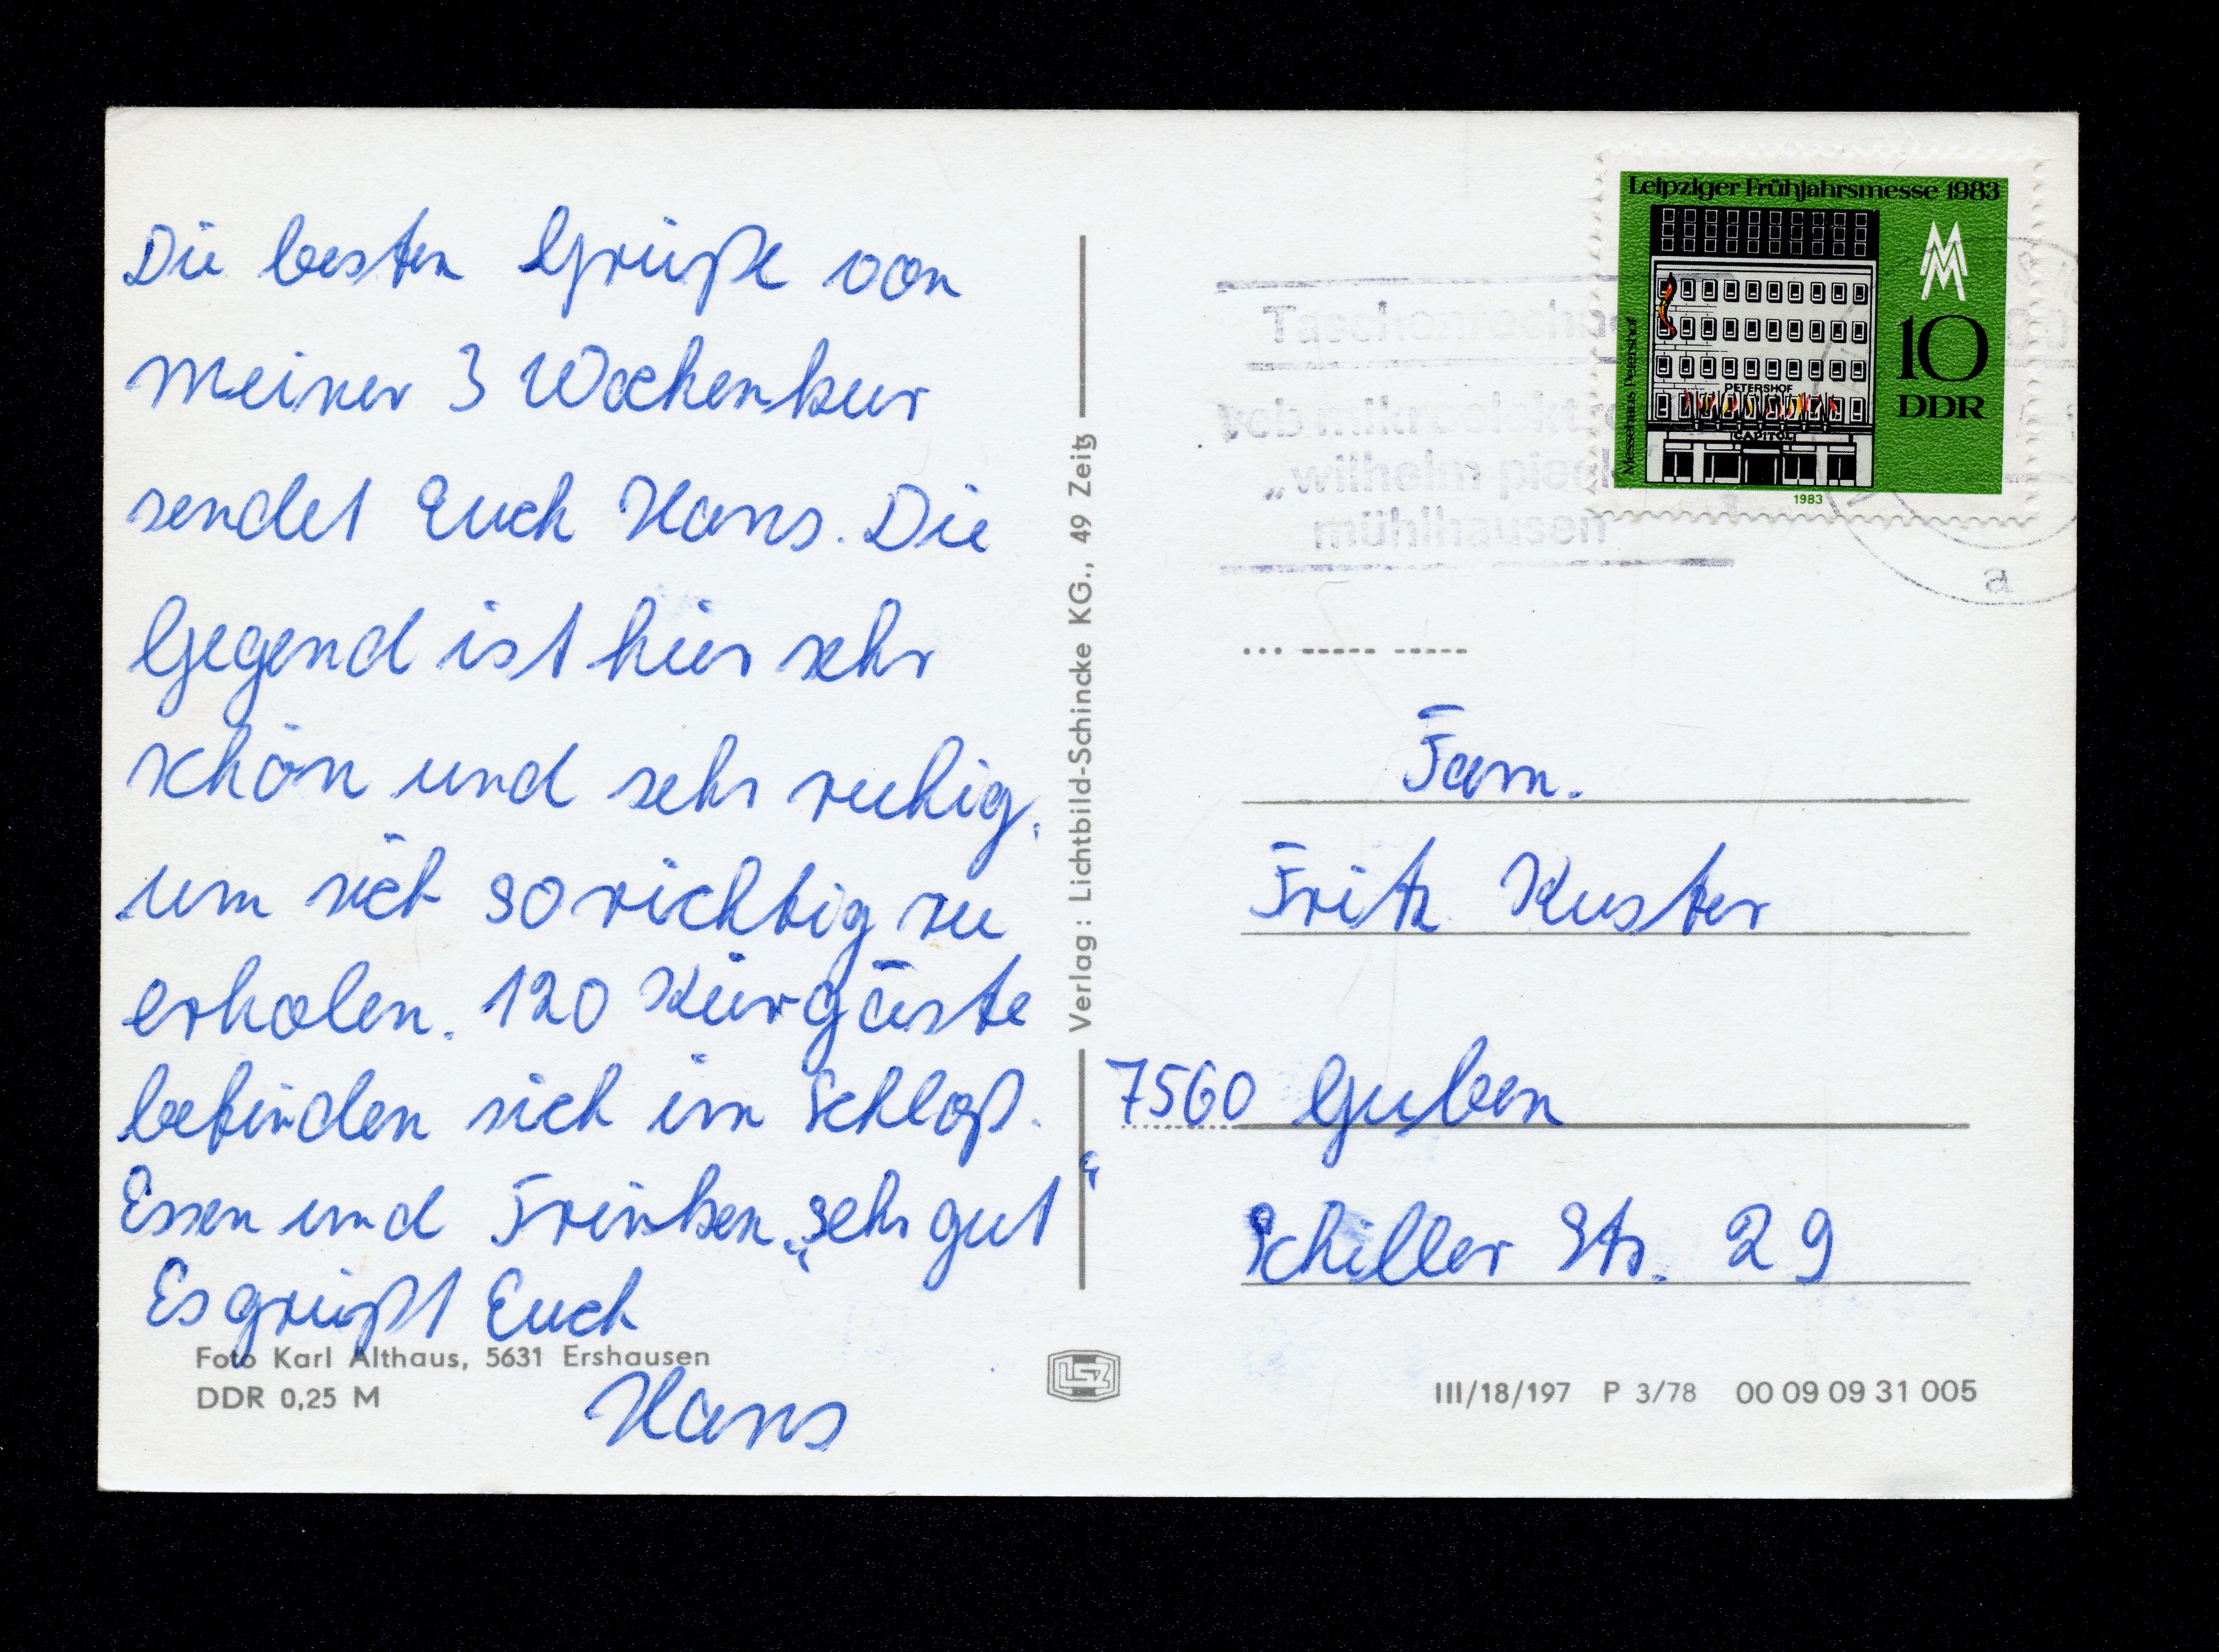 Die besten Grüße von
meiner 3 Wochenkur
sendet Euch Hans. Die
Gegend ist hier sehr
schön und sehr ruhig,
um sich so richtig zu
erholen. 120 Kurgäste
befinden sich im Schloß.
Essen und Trinken „sehr gut“
Es grüßt Euch
Hans
Foto Karl Althaus, 5631 Ershausen
DDR 0,25 M
Verlag: Lichtbild-Schincke KG., 49 Zeitz
LSZ
Leipziger Frühjahrsmesse 1983
MM
Messehaus Petershof
PETERSHOF
CAPITOL
10
DDR
1983
veb mikroelektro
„wilhelm pieck
mühlhausen
a
Fam.
Fritz Kuster
7560 Guben
Schiller Str. 29
III/18/197 P 3/78 00 09 09 31 005